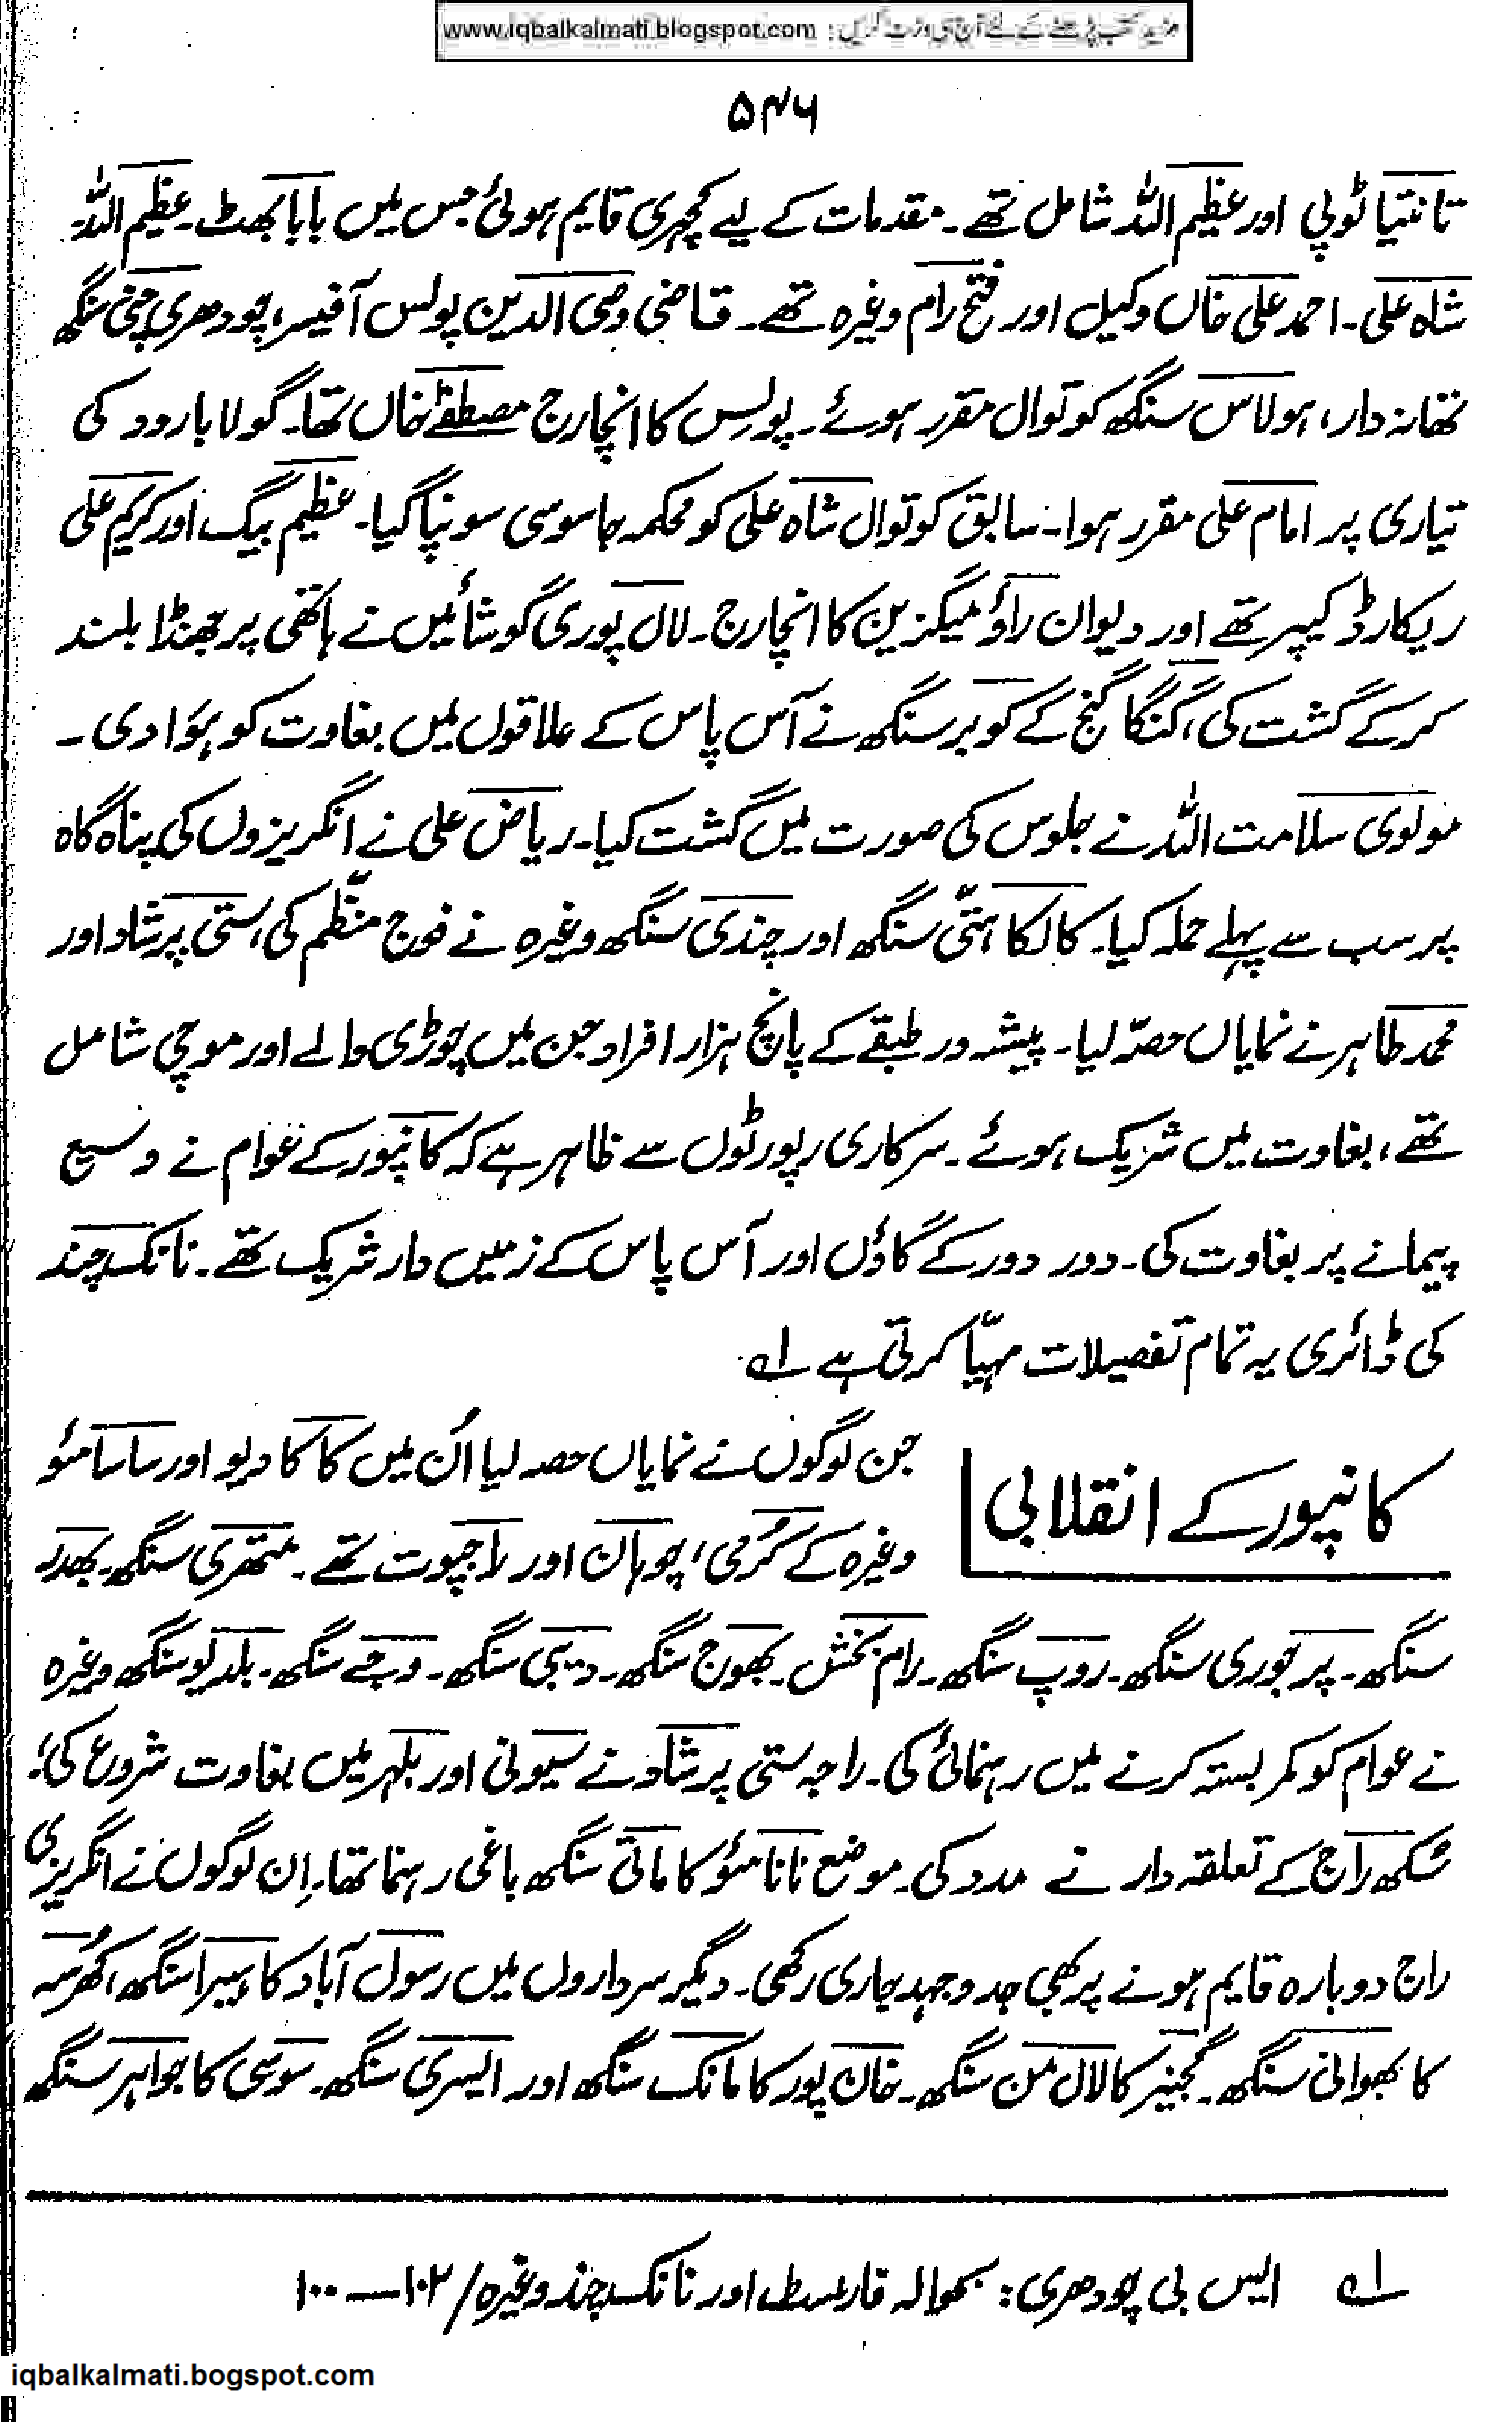 www.iqbalkalmati.blogspot.com : مزید کتب پڑھنے کے لئے آج ہی وزٹ کریں
۵۴۶
تانتیا ٹوپی اور عظیم اللہ شامل تھے۔ مقدمات کے لیے کچہری قایم ہوئی جس میں بابا بھٹ۔ عظیم اللہ۔
شاہ علی۔ احمد علی خاں وکیل اور فتح رام وغیرہ تھے۔ قاضی وصی الدین پولس آفیسر، چودھری سنگھ
تھانہ دار، ہولاس سنگھ کوتوال مقرر ہوئے۔ پولِس کا انچارج مصطفےٰ خاں تھا۔ گولا بارود کی
تیاری پر امام علی مقرر ہوا۔ سابق کوتوال شاہ علی کو محکمہ جاسوسی سونپا گیا۔ عظیم بیگ اور کریم علی
ریکارڈ کیپر تھے اور دیوان راؤ میگزین کا انچارج۔ لال پوری گوشائیں نے ہاتھی پر جھنڈا بلند
کرکے گشت کی، گنگا گنج کے کوبر سنگھ نے آس پاس کے علاقوں میں بغاوت کو ہَوا دی۔
مولوی سلامت اللہ نے جلوس کی صورت میں گشت کیا۔ ریاض علی نے انگریزوں کی پناہ گاہ
پر سب سے پہلے حملہ کیا۔ کالکا ہتّی سنگھ اور چندی سنگھ وغیرہ نے فوج منظّم کی، ستی پرشاد اور
محمد طاہر نے نمایاں حصّہ لیا۔ پیشہ ور طبقے کے پانچ ہزار افراد جن میں چوڑی والے اور موچی شامل
تھے، بغاوت میں شریک ہوئے۔ سرکاری رپورٹوں سے ظاہر ہے کہ کانپور کے عوام نے وسیع
پیمانے پر بغاوت کی۔ دور دور کے گاؤں اور آس پاس کے زمیں دار شریک تھے۔ نانک چند
کی ڈائری یہ تمام تفصیلات مہیّا کرتی ہے ؎۱
کانپور کے انقلابی
جن لوگوں نے نمایاں حصہ لیا اُن میں کاکا دیو اور ساسامئو
وغیرہ کے کُرمی، چوہان اور راجپوت تھے۔ متھری سنگھ۔ بھدیہ
سنگھ۔ پرجوری سنگھ۔ روپ سنگھ۔ رام بخش۔ بھوج سنگھ۔ دیبی سنگھ۔ وجے سنگھ۔ بلدیو سنگھ وغیرہ
نے عوام کو کمر بستہ کرنے میں رہنمائی کی۔ راجہ ستی پرشاد نے سیونی اور بلہر میں بغاوت شروع کی؛
سکھ راج کے تعلقہ دار نے مدد کی۔ موضع نانامئو کا ماتی سنگھ باغی رہنما تھا۔ اِن لوگوں نے انگریزی
راج دوبارہ قایم ہونے پر بھی جدوجہد جاری رکھی۔ دیگر سرداروں میں رسول آباد کا ہیرا سنگھ، کھُرسہ
کا بھوانی سنگھ۔ گجنیر کا لال من سنگھ۔ خان پور کا مانک سنگھ اور ایسری سنگھ۔ سوسی کا جواہر سنگھ
؎۱ ایس بی چودھری: بحوالہ فارسٹ اور نانک چند وغیرہ/ ۱۰۲—۱۰۰
iqbalkalmati.bogspot.com